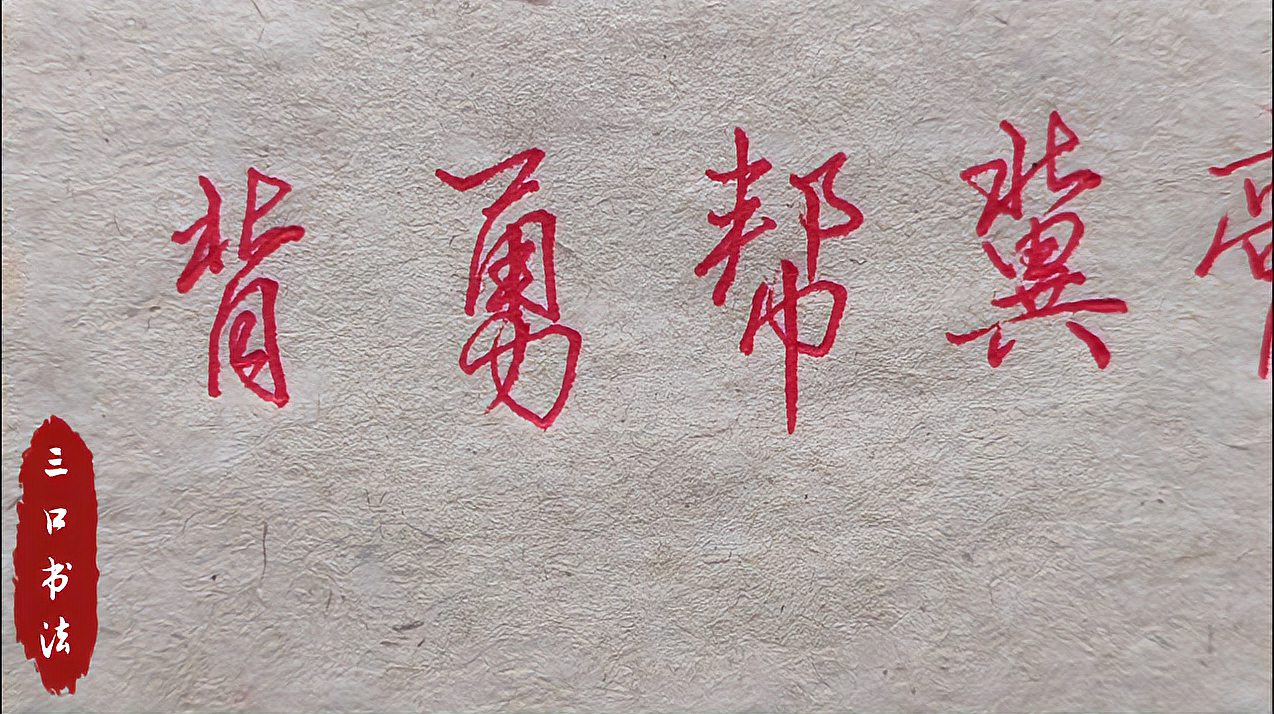 背勇帮冀
三口书法